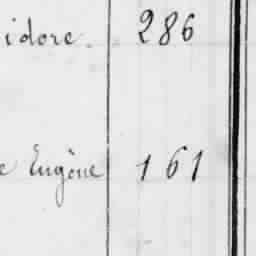 idore. 286
e Eugène 161